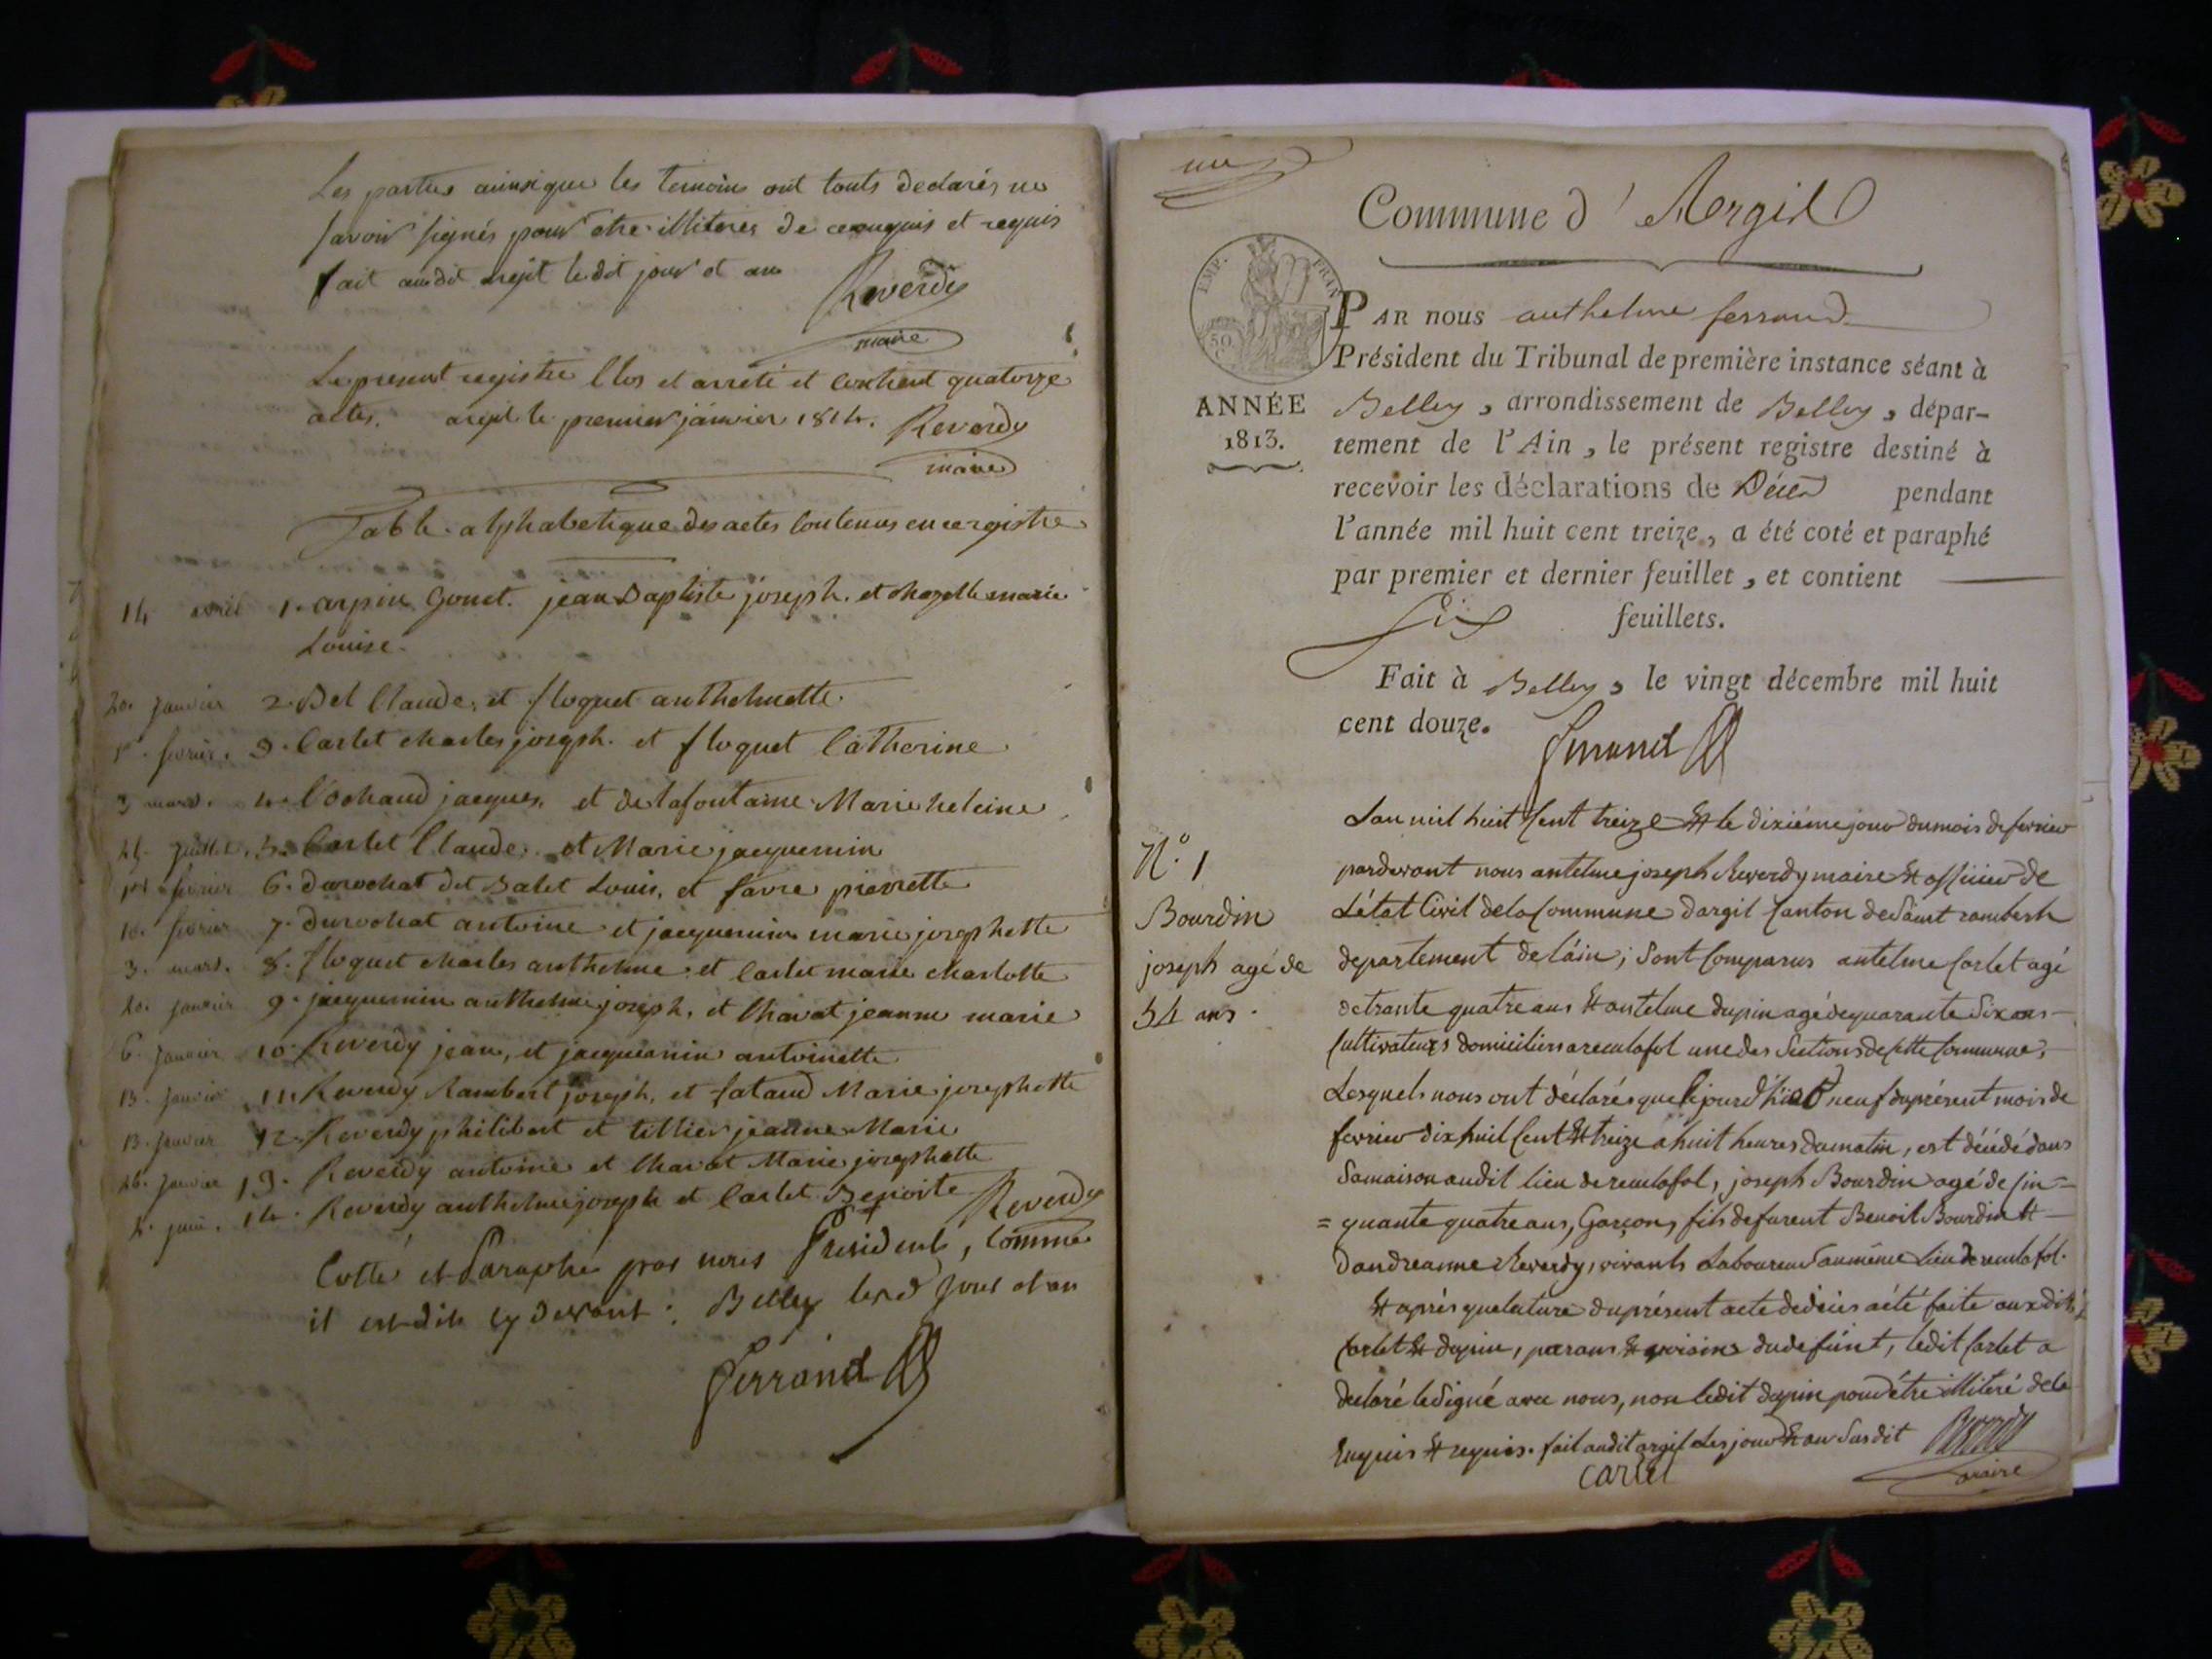 Les parties ainsi que les temoins ont touts declarés ne
savoir signés pour etre illiterés de ce enquis et requis
fait audit argit le dit jour et an
Reverdy
maire
Le present registre Clos et arreté et Contient quatorze
actes. argit le premier janvier 1814. Reverdy
maire
Table alphabetique des actes Contenus en ce registre
14 avril 1. arpin Gonet. jean Baptiste joseph. et marie
Louise.
20. janvier 2. Bel Claude, et floquet anthelmette
1er. fevrier. 3. Carlet charles joseph. et floquet Catherine
3 mars. 4. Cochand jacques, et delafontaine Marie heleine
juillet. 5. Carlet Claude, et Marie jacquemin
fevrier 6. durochat dit Balet Louis, et favre pierrette
10. fevrier 7. durochat antoine et jacquemin marie josephette
3. mars. 8. floquet charles anthelme et Carlet marie charlotte
20. janvier 9. jacquemin anthelme joseph, et Chavat jeanne marie
6. janvier 10. Reverdy jean, et jacquemin antoinette
13. janvier 11. Reverdy Rambert joseph, et fataud Marie josephette
13. janvier 12. Reverdy philibert et tillier jeanne Marie
26. janvier 13. Reverdy antoine et Chavat Marie josephette
juin. 14. Reverdy anthelme joseph et Carlet Benoite
Reverdy
Cotté et Paraphé par nous Président, Comme
il est dit cy devant. Belley lesd. jour et an
Ferrand
une
Commune d'Argil
EMP. FRAN
50
C
PAR nous anthelme ferrand
Président du Tribunal de première instance séant à
ANNÉE Belley, arrondissement de Belley, dépar-
1813. tement de l'Ain, le présent registre destiné à
recevoir les déclarations de Décès pendant
l'année mil huit cent treize, a été coté et paraphé
par premier et dernier feuillet, et contient
Six feuillets.
Fait à Belley, le vingt décembre mil huit
cent douze.
Ferrand
N.º 1
Bourdin
joseph agé de
54 ans.
Lan mil huit Cent treize & le dixiéme jour du mois de fevrier
pardevant nous antelme joseph Reverdy maire & officier de
L'état Civil de la Commune dargil Canton de Saint rambert
departement de l'áin; Sont Comparus antelme Carlet agé
detrante quatre ans & antelme dupin agé de quarante Six ans
Cultivateurs domiciliers a reculafol une des Sections de cette Commune,
Lesquels nous ont déclarés que le jour d'hier neuf du présent mois de
fevrier dix huit Cent & treize a huit heures du matin, est décédé dans
Sa maison audit lieu de reculafol, joseph Bourdin agé de Cin=
=quante quatre ans, Garçon, fils de furent Benoit Bourdin &
d'andreanne Reverdy, vivants Laboureurs au même Lieu de reculafol.
& aprés que lecture du présent acte de décès a été faite aux dits
Carlet & dupin, parans & voisins du defunt, ledit Carlet a
declaré le Signé avec nous, non ledit dupin pour étre illiteré de le
Enquis & requis. fait audit argil Les jour & an Susdit
Reverdy
maire
Carlet